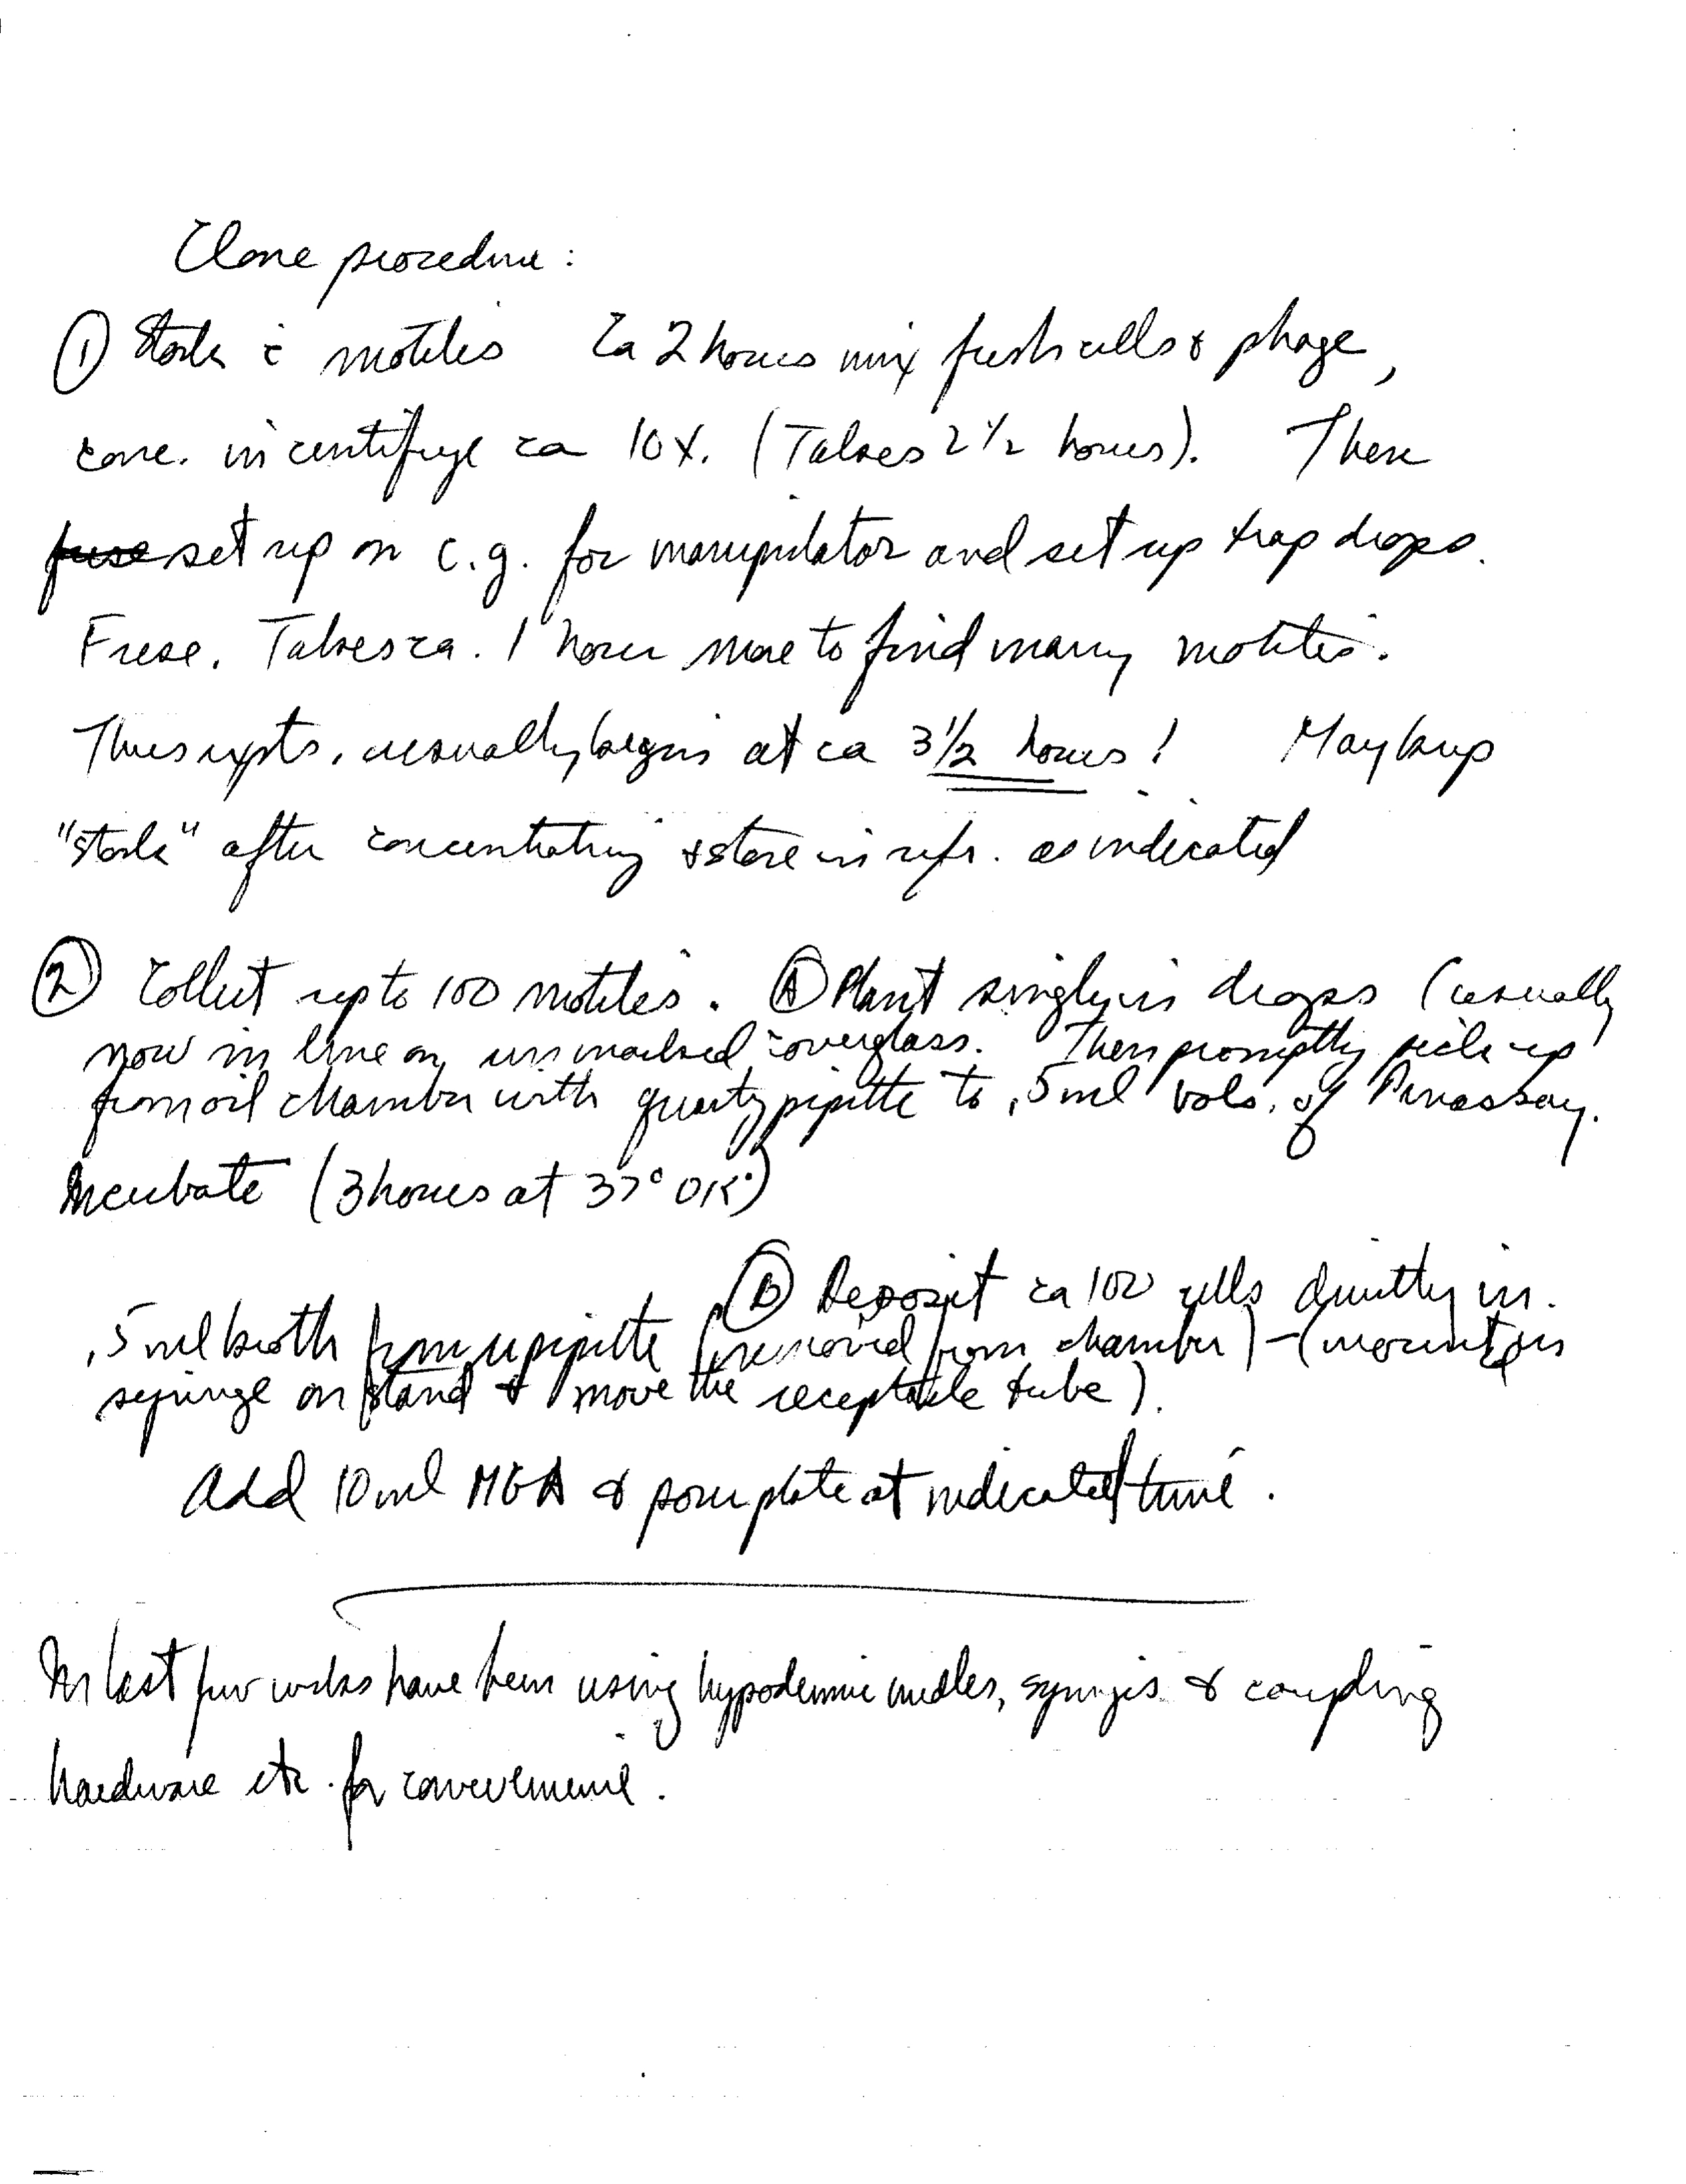 Clone procedure:
① Stock c̄ motiles Ca 2 hours mix fresh cells & phage,
conc. in centrifuge ca 10X. (Takes 2 1/2 hours). Then
set up on c.g. for manipulator and set up trap drops.
Takes ca. 1 hour more to find many motiles.
Thus expts. usually begin at ca 3 1/2 hours! May keep
"stock" after concentrating & store in refr. as indicated
② Collect up to 100 motiles. Ⓐ Plant singly in drops (usually
now in line on unmarked coverglass. Then promptly pick up
from oil chamber with quartz pipette to .5 ml vols. of Penassay.
Incubate (3 hours at 37° OK.)
Ⓑ Deposit ca 100 cells directly in
.5 ml broth from μpipette (removed from chamber) - (mount in
syringe on stand & move the receptacle tube).
Add 10 ml MGA & pour plate at indicated time.
In last few weeks have been using hypodermic needles, syringes & coupling
hardware etc. for convenience.